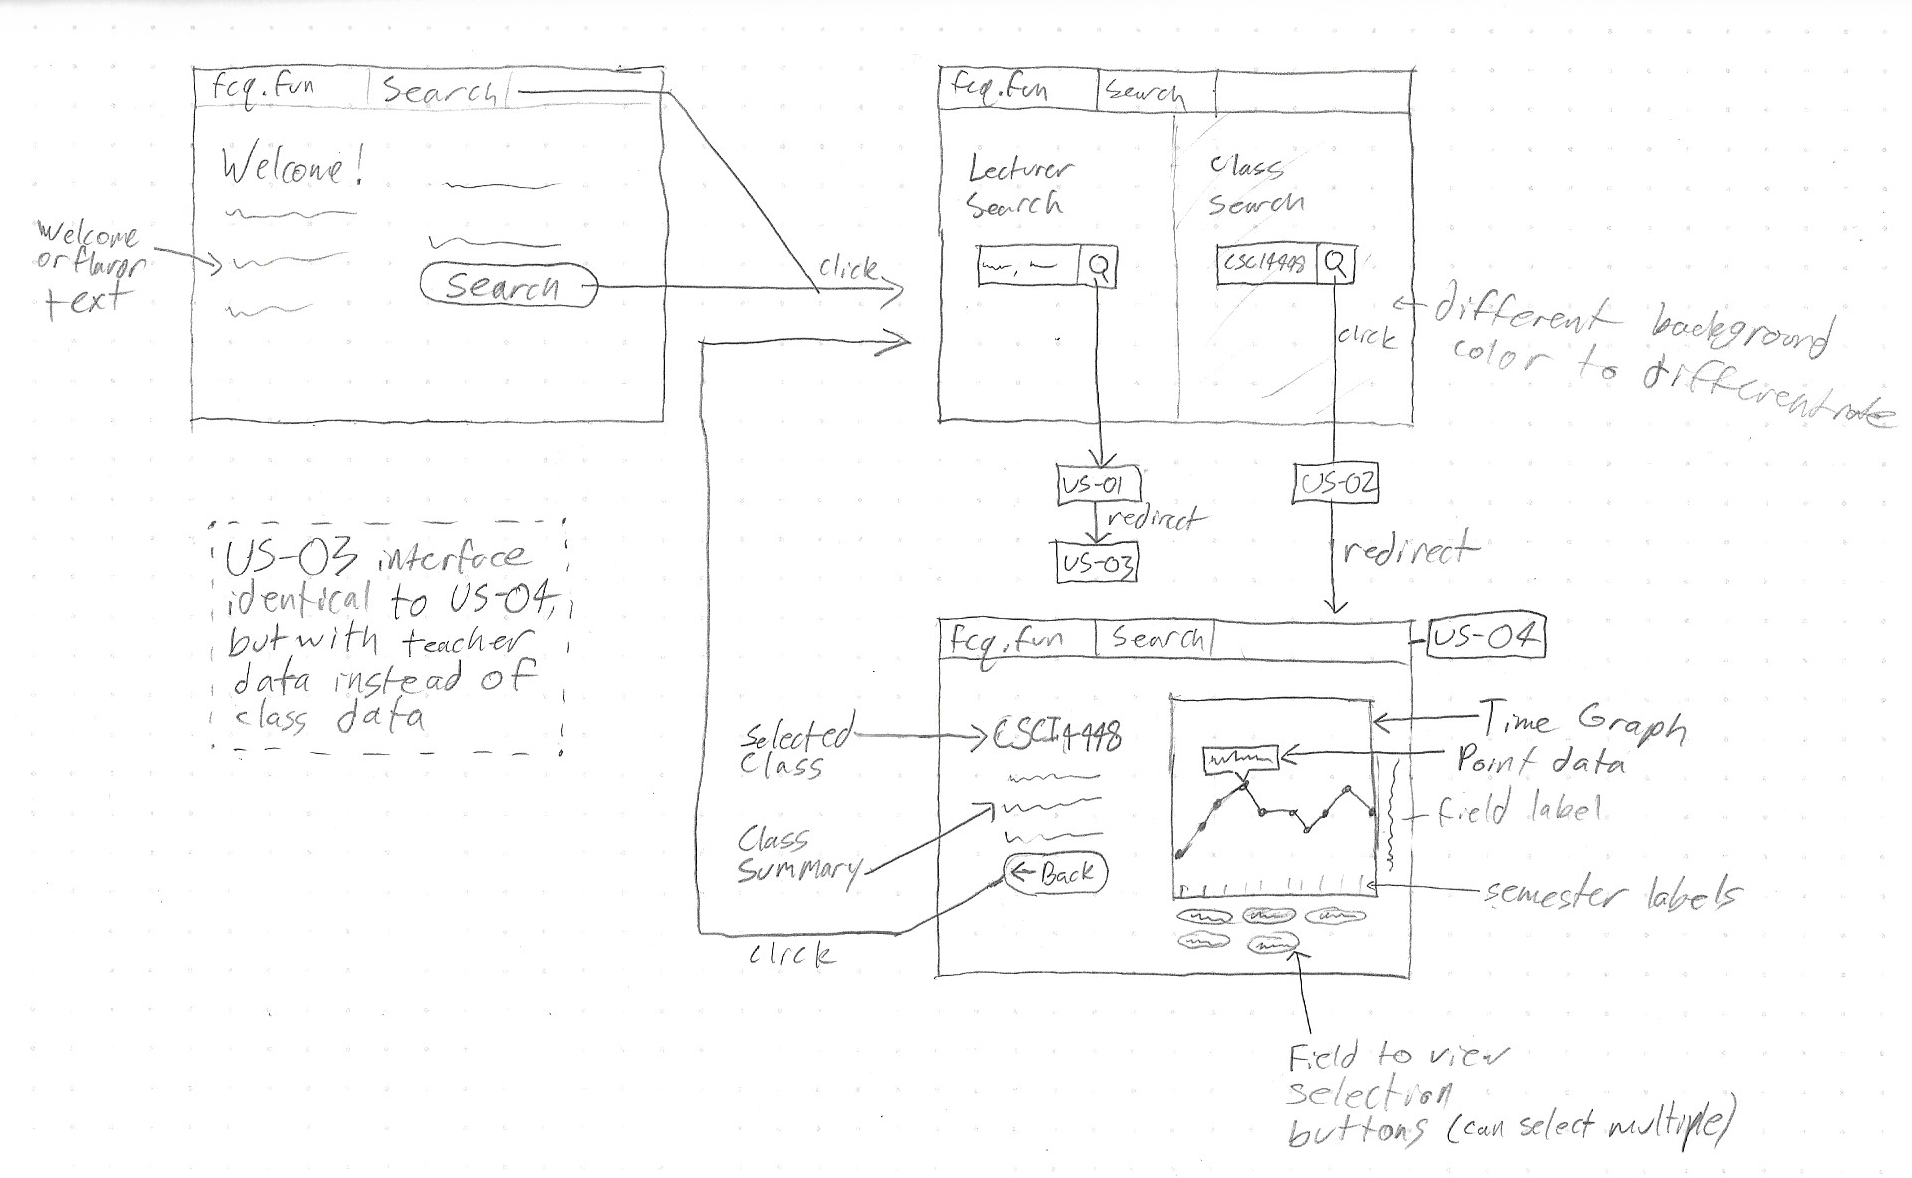 fcq.fun
Search
Welcome!
Search
Welcome
or flavor
text
click
fcq.fun
Search
Lecturer
Search
Class
Search
CSCI4448
click
different background
color to differentiate
US-01
redirect
US-03
US-02
redirect
US-03 interface
identical to US-04,
but with teacher
data instead of
class data
fcq.fun
Search
US-04
Selected
Class
CSCI4448
Class
Summary
← Back
click
Time Graph
Point data
field label
semester labels
Field to view
selection
buttons (can select multiple)